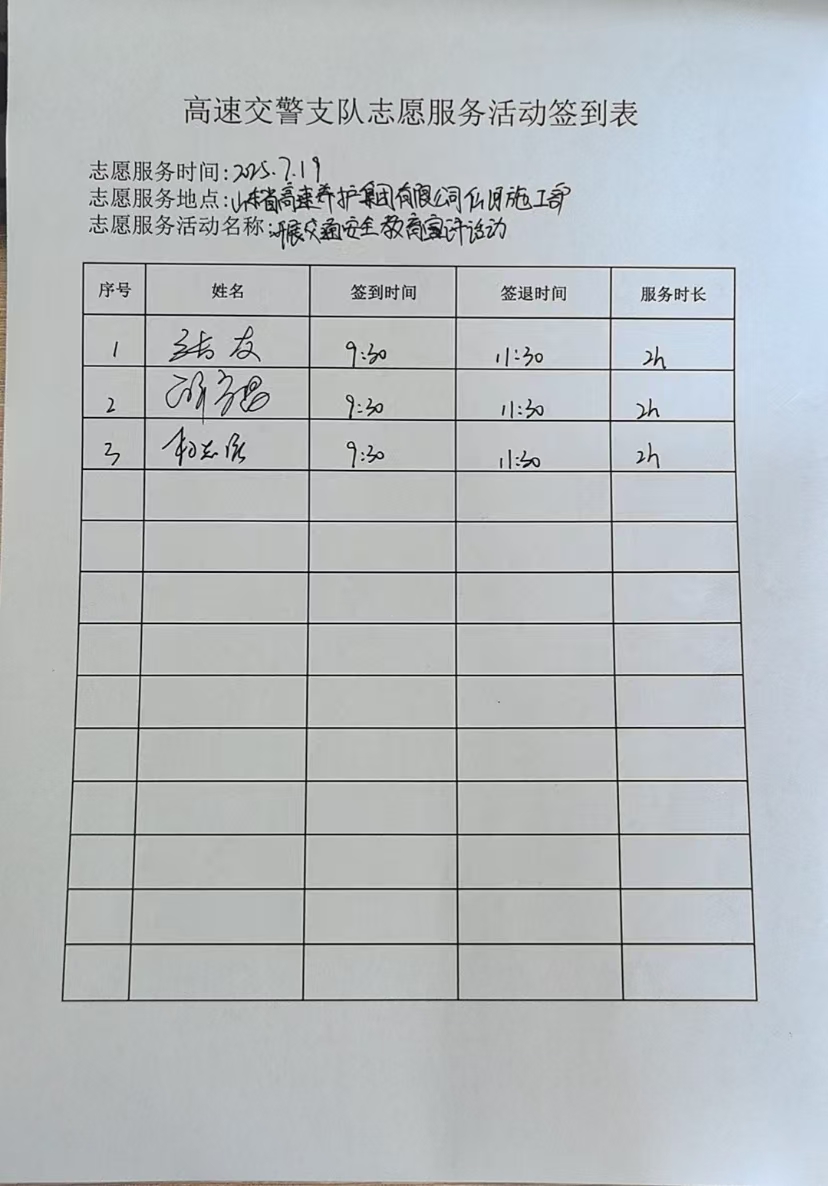 高速交警支队志愿服务活动签到表
志愿服务时间:2025.7.19
志愿服务地点:山东省高速养护集团有限公司施工部
志愿服务活动名称:开展交通安全教育宣讲活动
序号 姓名 签到时间 签退时间 服务时长
1 9:30 11:30 2h
2 9:30 11:30 2h
3 9:30 11:30 2h